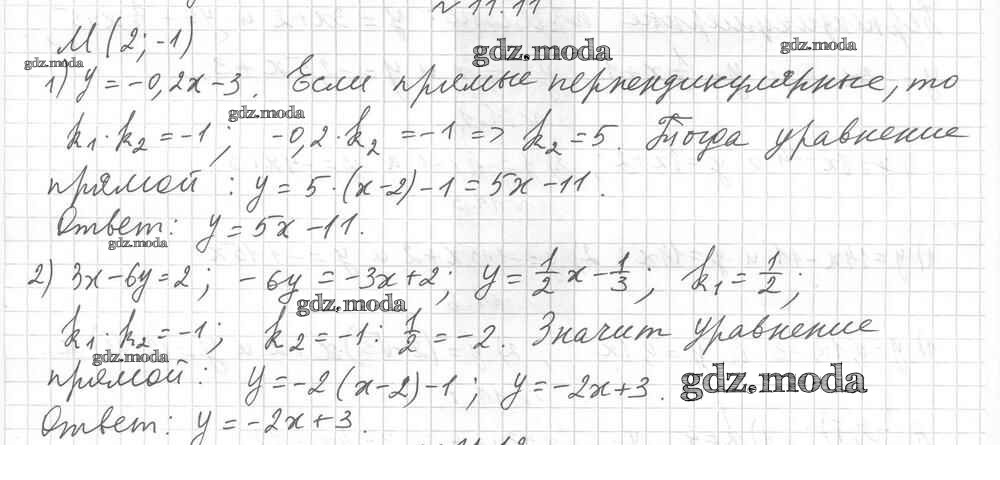 № 11.11
М (2; -1)
gdz.moda
gdz.moda
gdz.moda
1) y = -0,2x - 3. Если прямые перпендикулярные, то
gdz.moda
k₁ · k₂ = -1; -0,2 · k₂ = -1 => k₂ = 5. Тогда уравнение
прямой: y = 5 · (x - 2) - 1 = 5x - 11.
Ответ: y = 5x - 11.
gdz.moda
2) 3x - 6y = 2; -6y = -3x + 2; y = 1/2 x - 1/3; k₁ = 1/2;
gdz.moda
k₁ · k₂ = -1; k₂ = -1 : 1/2 = -2. Значит уравнение
gdz.moda
прямой: y = -2(x - 2) - 1; y = -2x + 3.
gdz.moda
Ответ: y = -2x + 3.